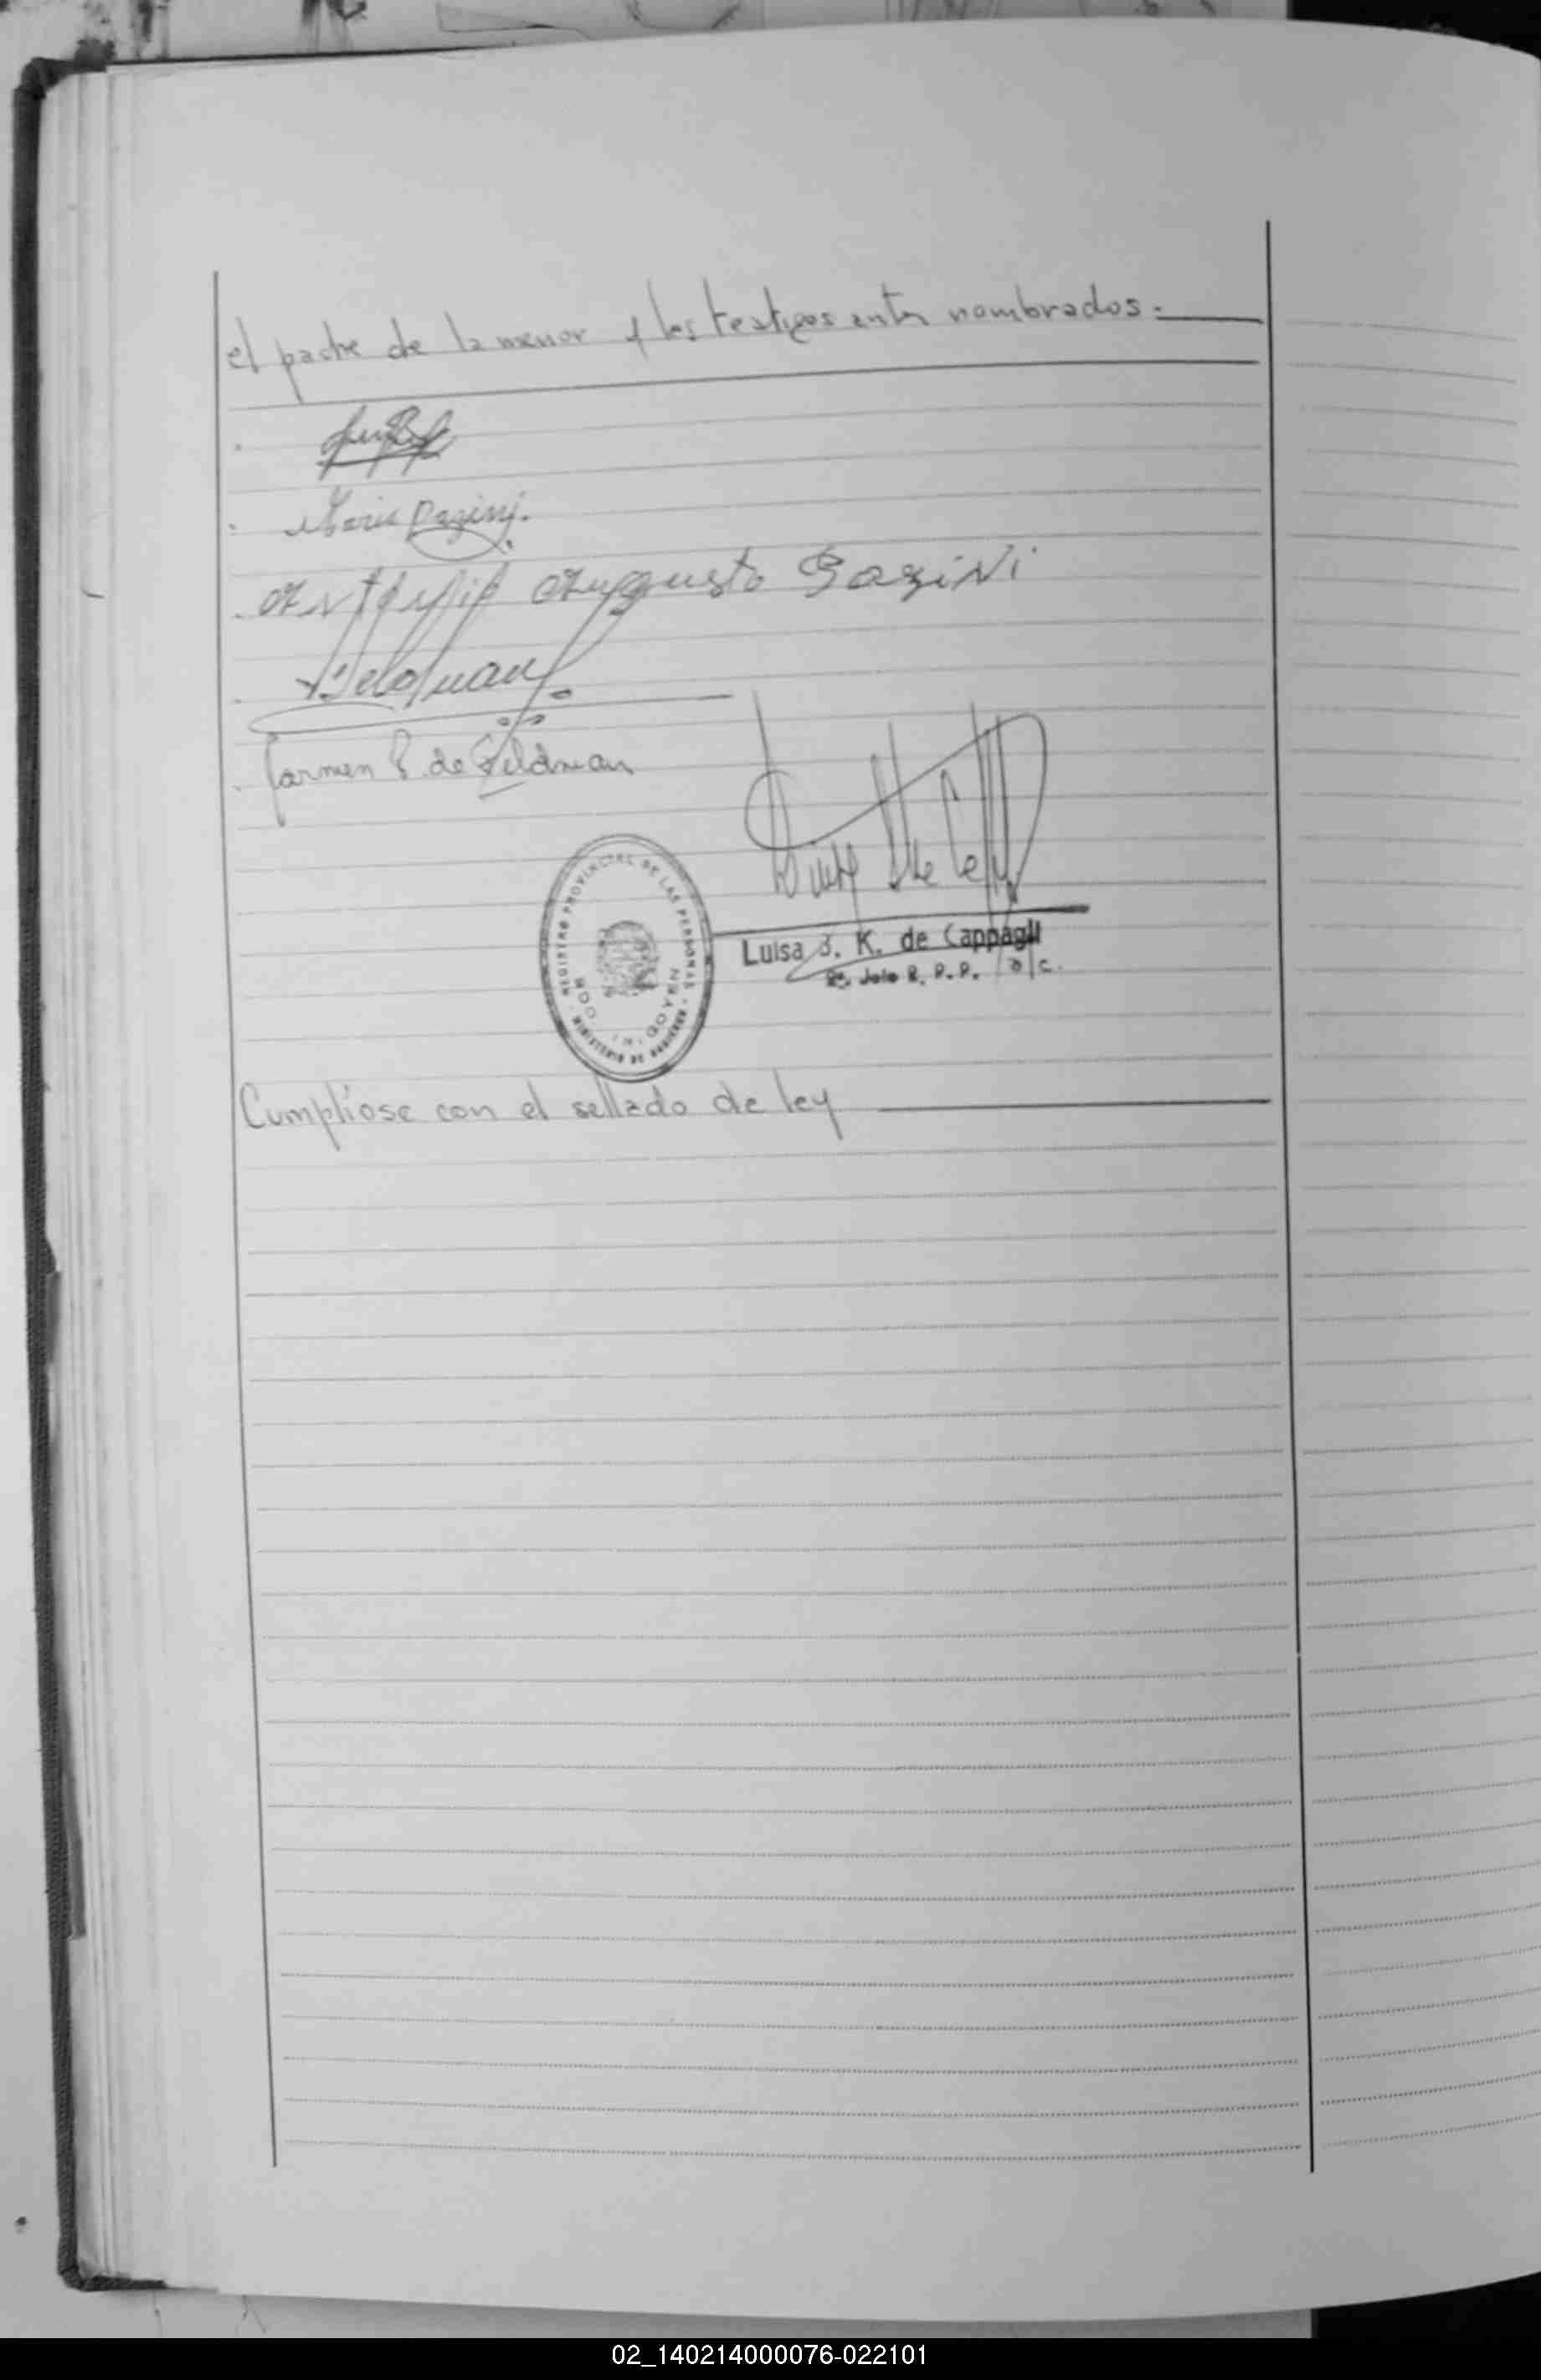 el padre de la menor y los testigos antes nombrados.-
Maria Pazini.
Augusto Pazini
Feldman
Carmen P. de Feldman
REGISTRO PROVINCIAL DE LAS PERSONAS
MINISTERIO DE GOBIERNO
Luisa K. de Cappagli
R. P. P. a/c.
Cumpliose con el sellado de ley
02_140214000076-022101